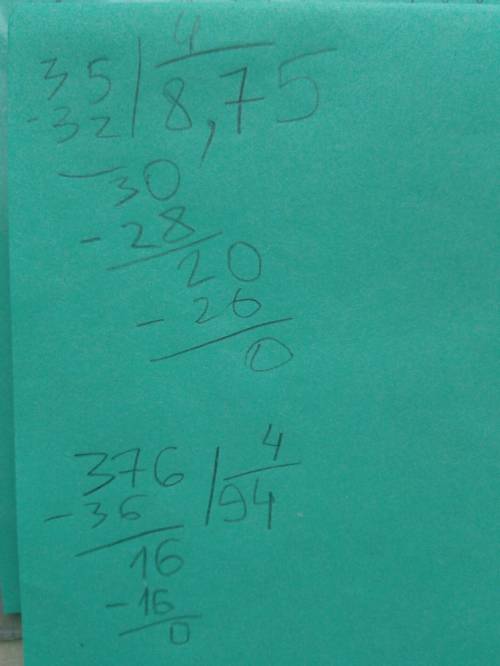 35 | 4
-32 | 8,75
30
-28
20
-20
0
376 | 4
-36 | 94
16
-16
0